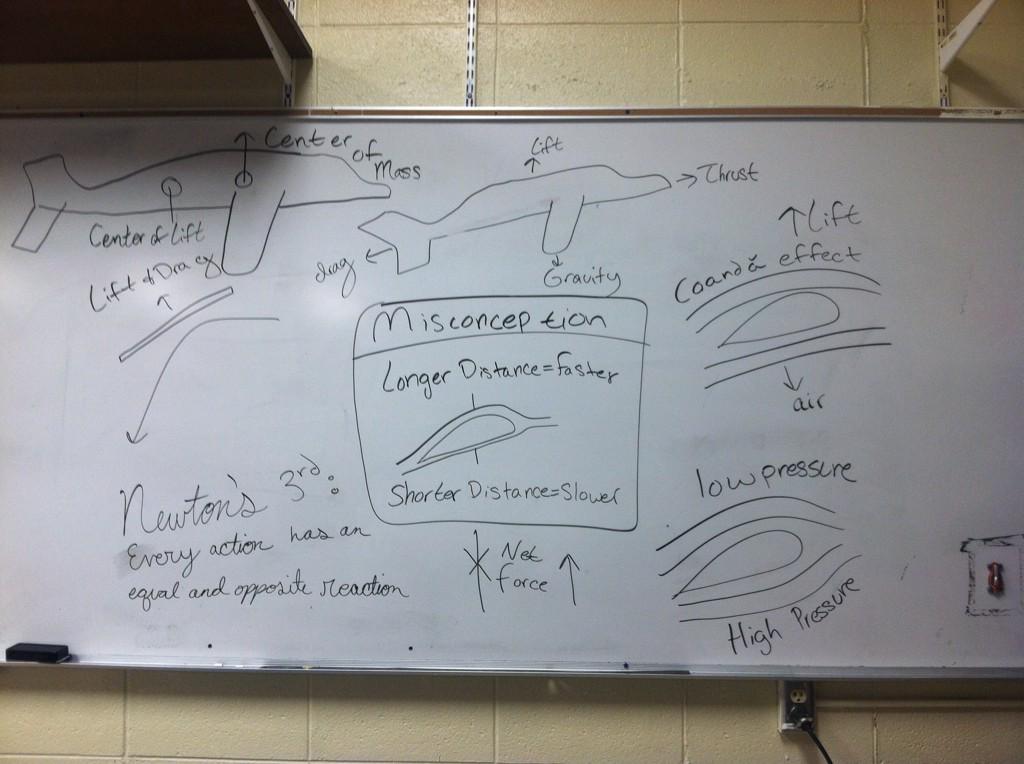 Center
of
Mass
Center of Lift
Lift
Thrust
drag
Gravity
Lift of Drag
Lift
Coandă effect
air
Misconception
Longer Distance=faster
Shorter Distance=Slower
Newton's 3rd:
Every action has an
equal and opposite reaction
Net
force
low pressure
High Pressure